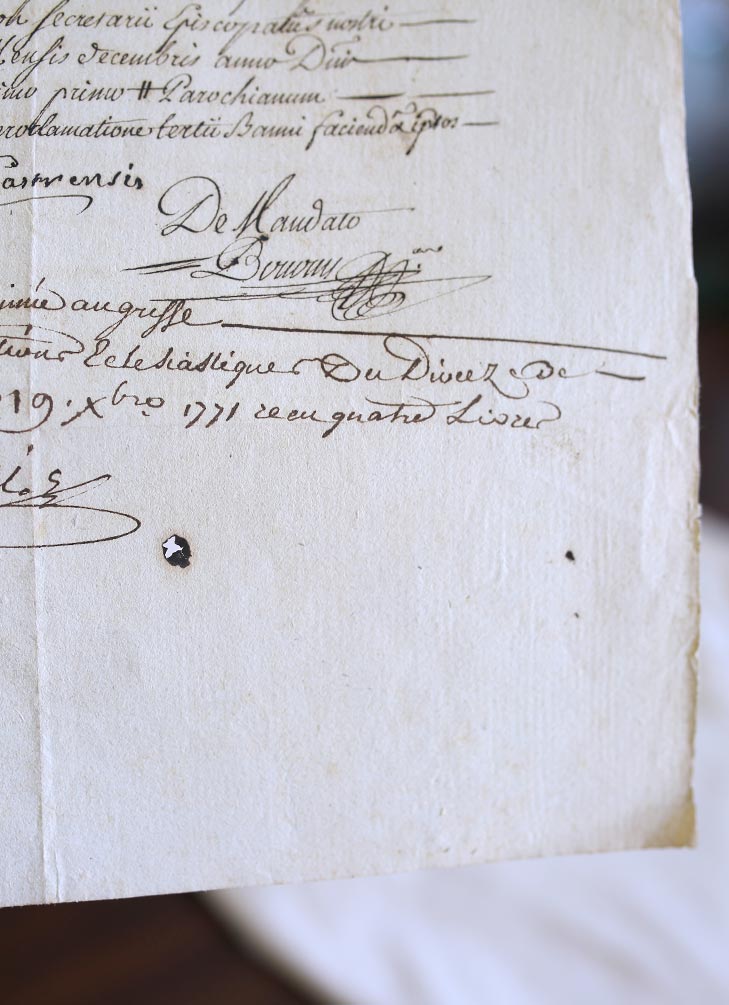 Secretarii Episcopatus nostri
Mensis decembris anno Dni
imo primo # Parochianum
proclamatione tertii Banni faciend
De Mandato
au greffe
Eclesiastiques Du Dioceze de
19. Xbre 1771 recu quatre Livres